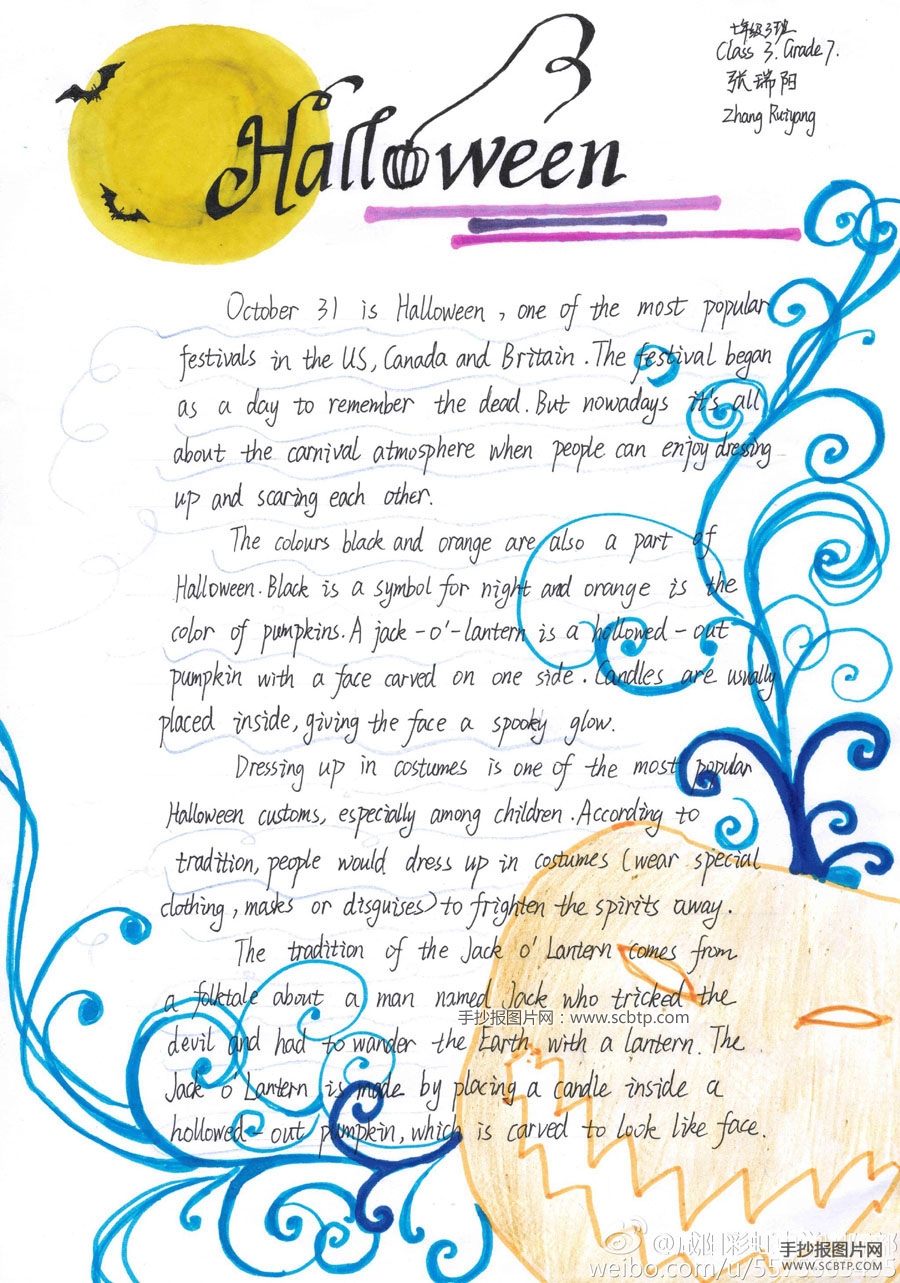 七年级3班
Class 3. Grade 7.
张瑞阳
Zhang Ruiyang
Halloween
October 31 is Halloween, one of the most popular
festivals in the US, Canada and Britain. The festival began
as a day to remember the dead. But nowadays it's all
about the carnival atmosphere when people can enjoy dressing
up and scaring each other.
The colours black and orange are also a part of
Halloween. Black is a symbol for night and orange is the
color of pumpkins. A jack-o'-lantern is a hollowed-out
pumpkin with a face carved on one side. Candles are usually
placed inside, giving the face a spooky glow.
Dressing up in costumes is one of the most popular
Halloween customs, especially among children. According to
tradition, people would dress up in costumes (wear special
clothing, masks or disguises) to frighten the spirits away.
The tradition of the Jack o' Lantern comes from
a folktale about a man named Jack who tricked the
手抄报图片网：www.scbtp.com
devil and had to wander the Earth with a lantern. The
Jack o' Lantern is made by placing a candle inside a
hollowed-out pumpkin, which is carved to look like face.
手抄报图片网
weibo.com/u/55
WWW.SCBTP.COM